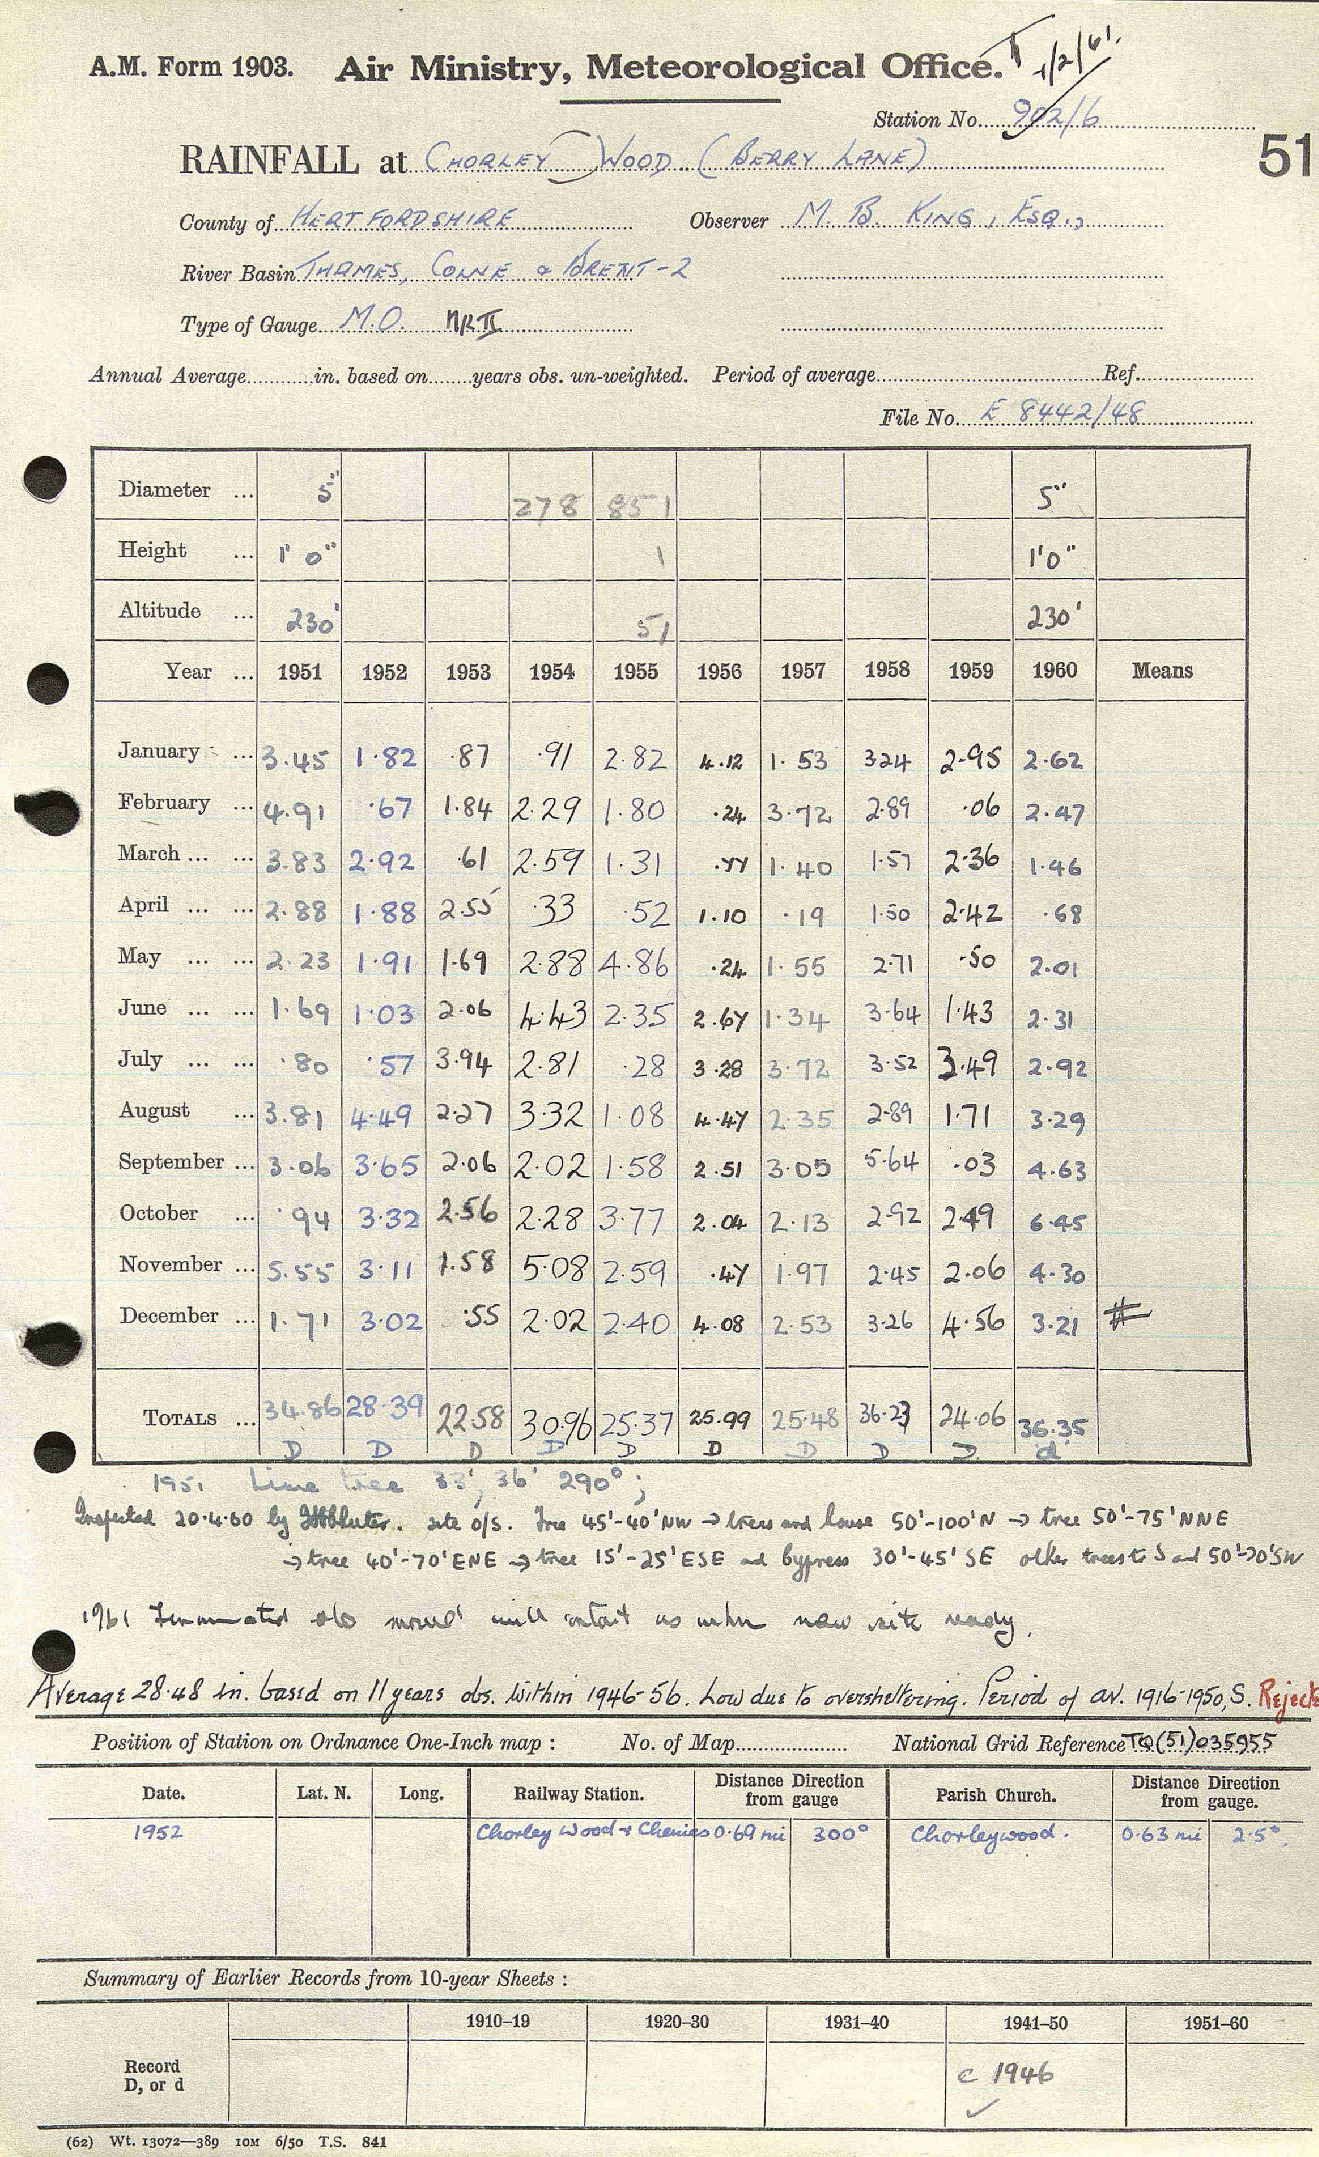 A.M. Form 1903. Air Ministry, Meteorological Office. 1/2/61.
Station No. 902/6
51
RAINFALL at CHORLEY WOOD (BERRY LANE)
County of HERTFORDSHIRE Observer M. B. KING, ESQ.,
River Basin THAMES, COLNE & BRENT-2
Type of Gauge M.O. MK II
Annual Average in. based on years obs. un-weighted. Period of average Ref.
File No. E 8442/48
Diameter ... 5" 278 851 5"
Height ... 1' 0" 1 1'0"
Altitude ... 230' 51 230'
Year ... 1951 1952 1953 1954 1955 1956 1957 1958 1959 1960 Means
January ... 3.45 1.82 .87 .91 2.82 4.12 1.53 3.24 2.95 2.62
February ... 4.91 .67 1.84 2.29 1.80 .24 3.72 2.89 .06 2.47
March ... ... 3.83 2.92 .61 2.59 1.31 .77 1.40 1.57 2.36 1.46
April ... ... 2.88 1.88 2.55 .33 .52 1.10 .19 1.50 2.42 .68
May ... ... 2.23 1.91 1.69 2.88 4.86 .24 1.55 2.71 .50 2.01
June ... ... 1.69 1.03 2.06 4.43 2.35 2.67 1.34 3.64 1.43 2.31
July ... ... .80 .57 3.94 2.81 .28 3.28 3.72 3.52 3.49 2.92
August ... 3.81 4.49 2.27 3.32 1.08 4.47 2.35 2.89 1.71 3.29
September ... 3.06 3.65 2.06 2.02 1.58 2.51 3.05 5.64 .03 4.63
October ... .94 3.32 2.56 2.28 3.77 2.04 2.13 2.92 2.49 6.45
November ... 5.55 3.11 1.58 5.08 2.59 .47 1.97 2.45 2.06 4.30
December ... 1.71 3.02 .55 2.02 2.40 4.08 2.53 3.26 4.56 3.21 #
TOTALS ... 34.86 28.39 22.58 30.96 25.37 25.99 25.48 36.23 24.06 36.35
D D D D D D D D D d
1951 Lime tree 33', 36' 290°;
Inspected 20.4.60 by site o/s. Tree 45'-40'NW → trees and house 50'-100'N → tree 50'-75'NNE
→ tree 40'-70'ENE → tree 15'-25'ESE and cypress 30'-45'SE other trees to S and 50'-70'SW
1961 Terminated obs moved will contact us when new site ready.
Average 28.48 in. based on 11 years obs. within 1946-56. Low due to oversheltering. Period of av. 1916-1950, S. Reject
Position of Station on Ordnance One-Inch map : No. of Map National Grid Reference TQ(51)035955
Date. Lat. N. Long. Railway Station. Distance from gauge Direction Parish Church. Distance from gauge. Direction
1952 Chorley Wood & Chenies 0.69 mi 300° Chorleywood. 0.63 mi 2.5°
Summary of Earlier Records from 10-year Sheets :
1910–19 1920–30 1931–40 1941–50 1951–60
Record
D, or d
c 1946
(62) Wt. 13072—389 10M 6/50 T.S. 841